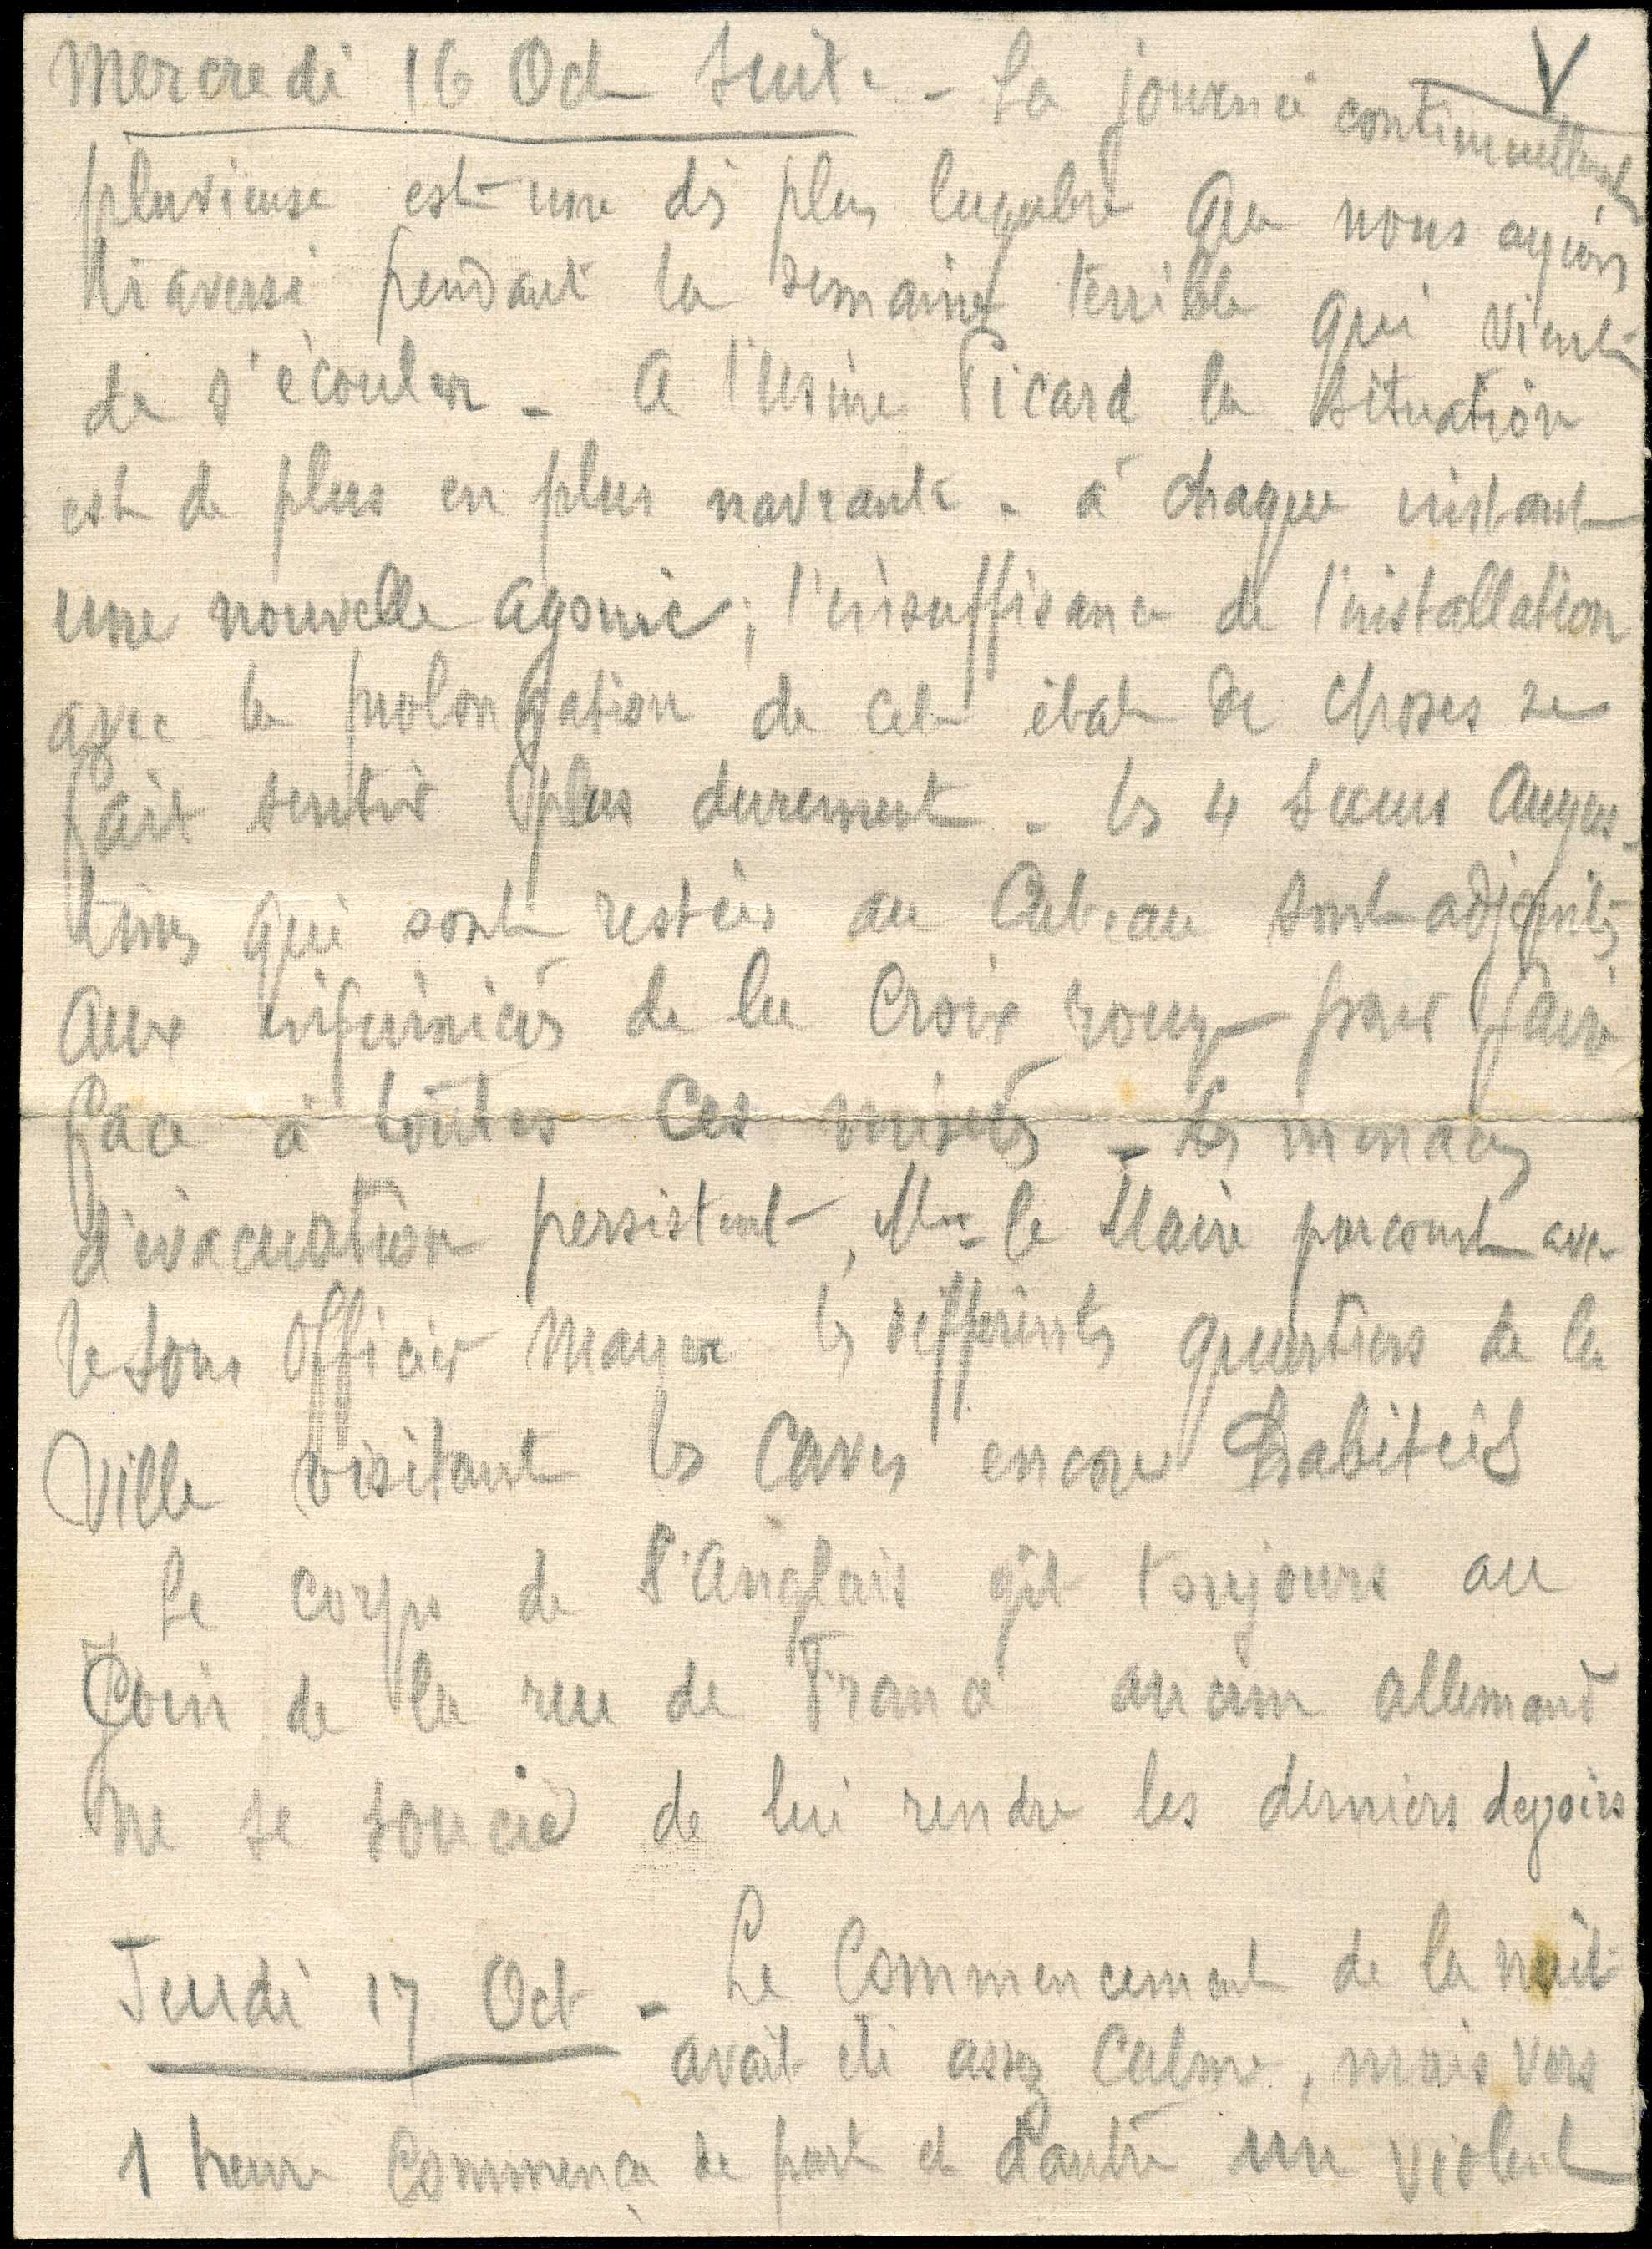 V
Mercredi 16 Oct Suite - La journée continuellement
pluvieuse est une des plus lugubre que nous ayions
traversé pendant la semaine terrible qui vient
de s'écouler - A l'Usine Picard la situation
est de plus en plus navrante - à chaque instant
une nouvelle agonie ; l'insuffisance de l'installation
avec la prolongation de cet état de choses se
fait sentir plus durement - les 4 Sœurs Augus-
tines qui sont restées au Cateau sont adjointes
aux infirmières de la Croix rouge pour faire
face à toutes ces misères - Les menaces
d'évacuation persistent, Mr le Maire parcourt avec
le Sous Officier Mayer les différents quartiers de la
Ville visitant les caves encore habitées
Le corps de l'Anglais gît toujours au
Coin de la rue de France aucun allemand
ne se soucie de lui rendre les derniers devoirs
Jeudi 17 Oct - Le Commencement de la nuit
avait été assez calme, mais vers
1 heure commença de part et d'autre un violent